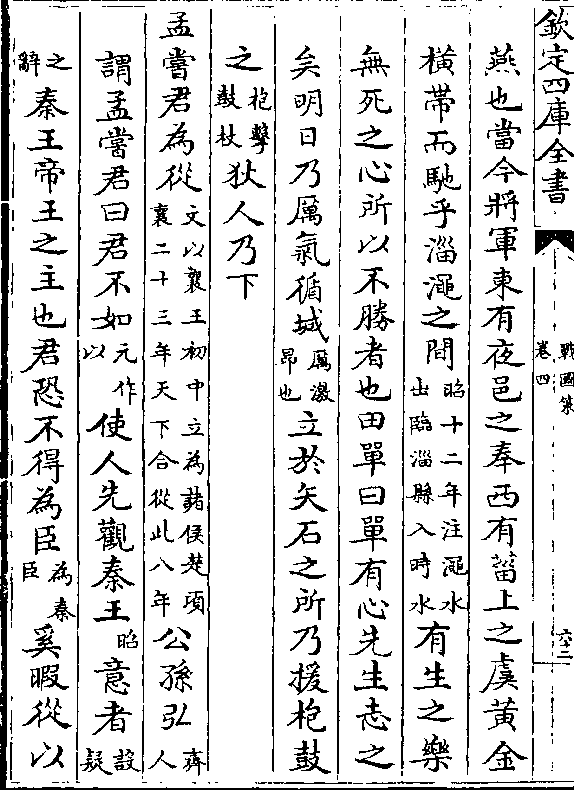 欽定四庫全書
戰國策
卷四
燕也當今將軍東有夜邑之奉西有菑上之虞黃金
橫帶而馳乎淄澠之間昭十二年注澠水出臨淄縣入時水有生之樂
無死之心所以不勝者也田單曰單有心先生志之
矣明日乃厲氣循城厲激昂也立於矢石之所乃援枹鼓
之枹擊鼓杖狄人乃下
孟嘗君為從文以襄王初中立為諸侯楚頃襄二十三年天下合從此八年公孫弘齊人
謂孟嘗君曰君不如元作以使人先觀秦王昭意者設疑
之辭秦王帝王之主也君恐不得為臣為秦臣奚暇從以